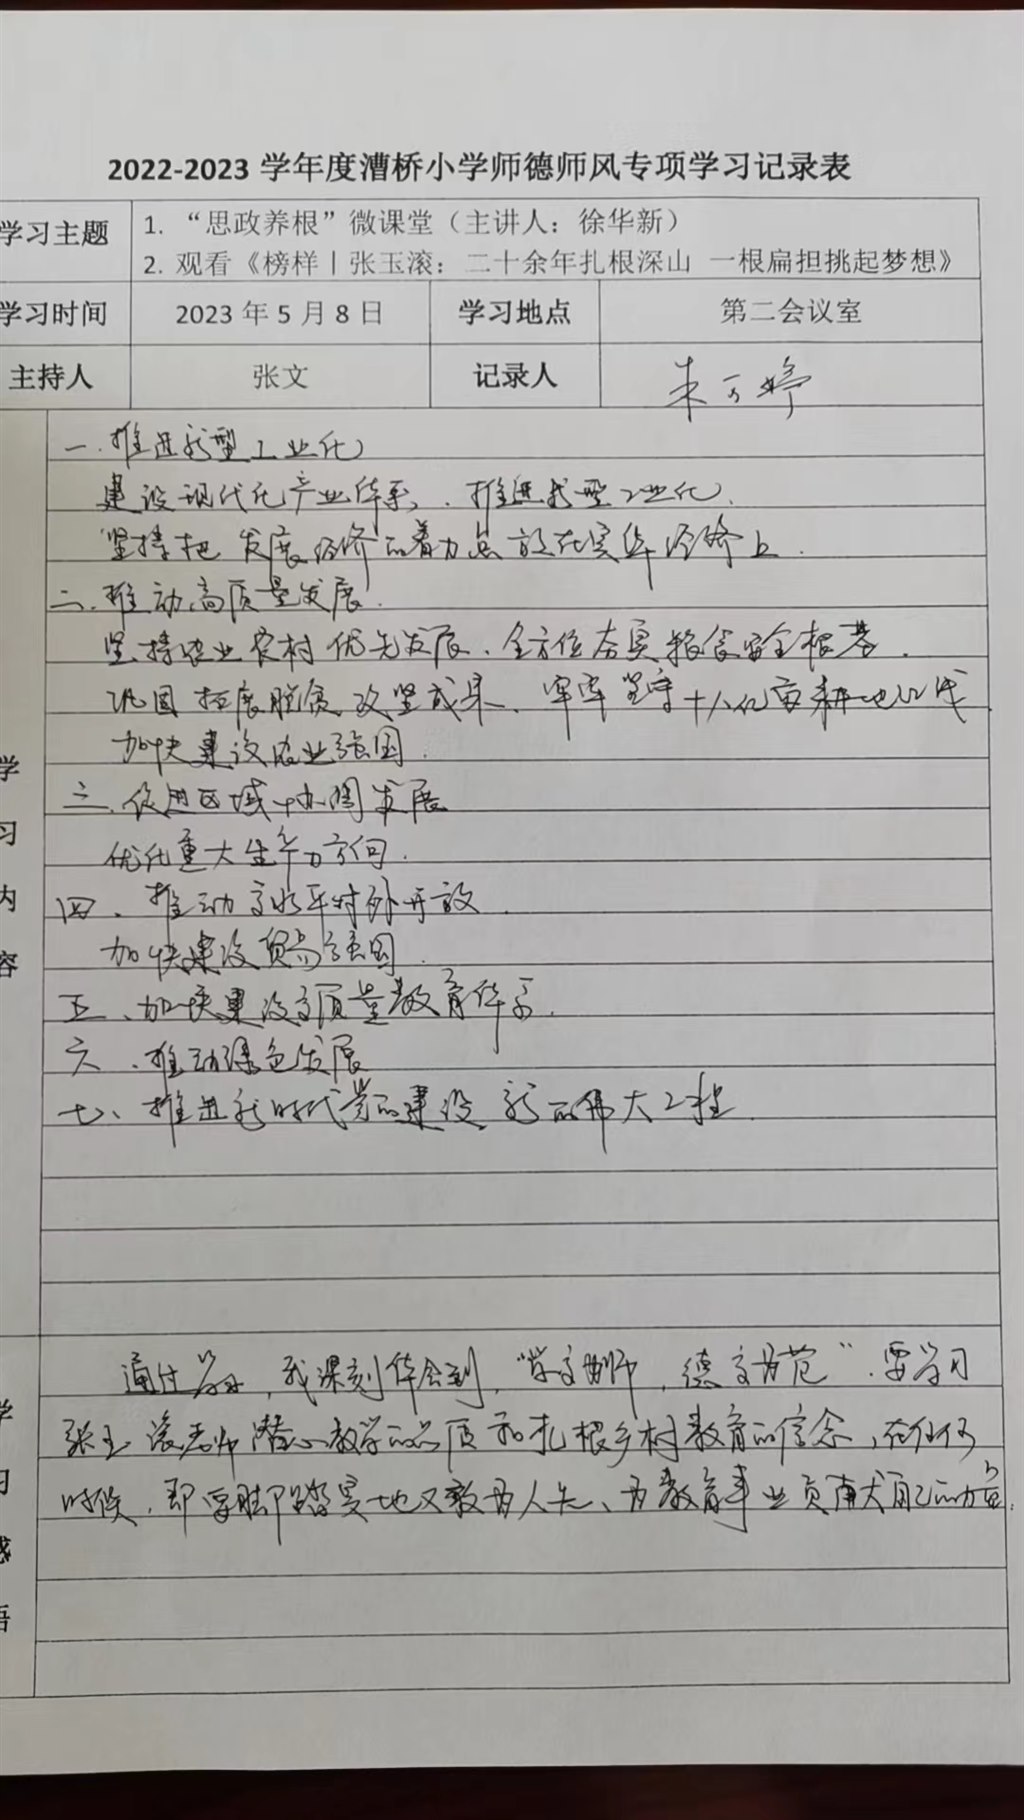 2022-2023 学年度漕桥小学师德师风专项学习记录表
学习主题
1. “思政养根”微课堂（主讲人：徐华新）
2. 观看《榜样丨张玉滚：二十余年扎根深山 一根扁担挑起梦想》
学习时间 2023 年 5 月 8 日 学习地点 第二会议室
主持人 张文 记录人 朱婷
学习内容
一.推进新型工业化
建设现代化产业体系，推进新型工业化.
坚持把发展经济的着力点放在实体经济上.
二.推动高质量发展.
坚持农业农村优先发展、全方位夯实粮食安全根基.
巩固拓展脱贫攻坚成果、牢牢坚守十八亿亩耕地红线
加快建设农业强国.
三.促进区域协调发展
优化重大生产力方向.
四、推动高水平对外开放.
加快建设贸易强国.
五、加快建设高质量教育体系.
六、推动绿色发展
七、推进新时代党的建设新的伟大工程.
学习感悟
通过学习，我深刻体会到，“学高为师，德高为范”.要学习
张玉滚老师潜心教学的品质和扎根乡村教育的信念，在任何
时候，都要脚踏实地又敢为人先、为教育事业贡献自己的力量.